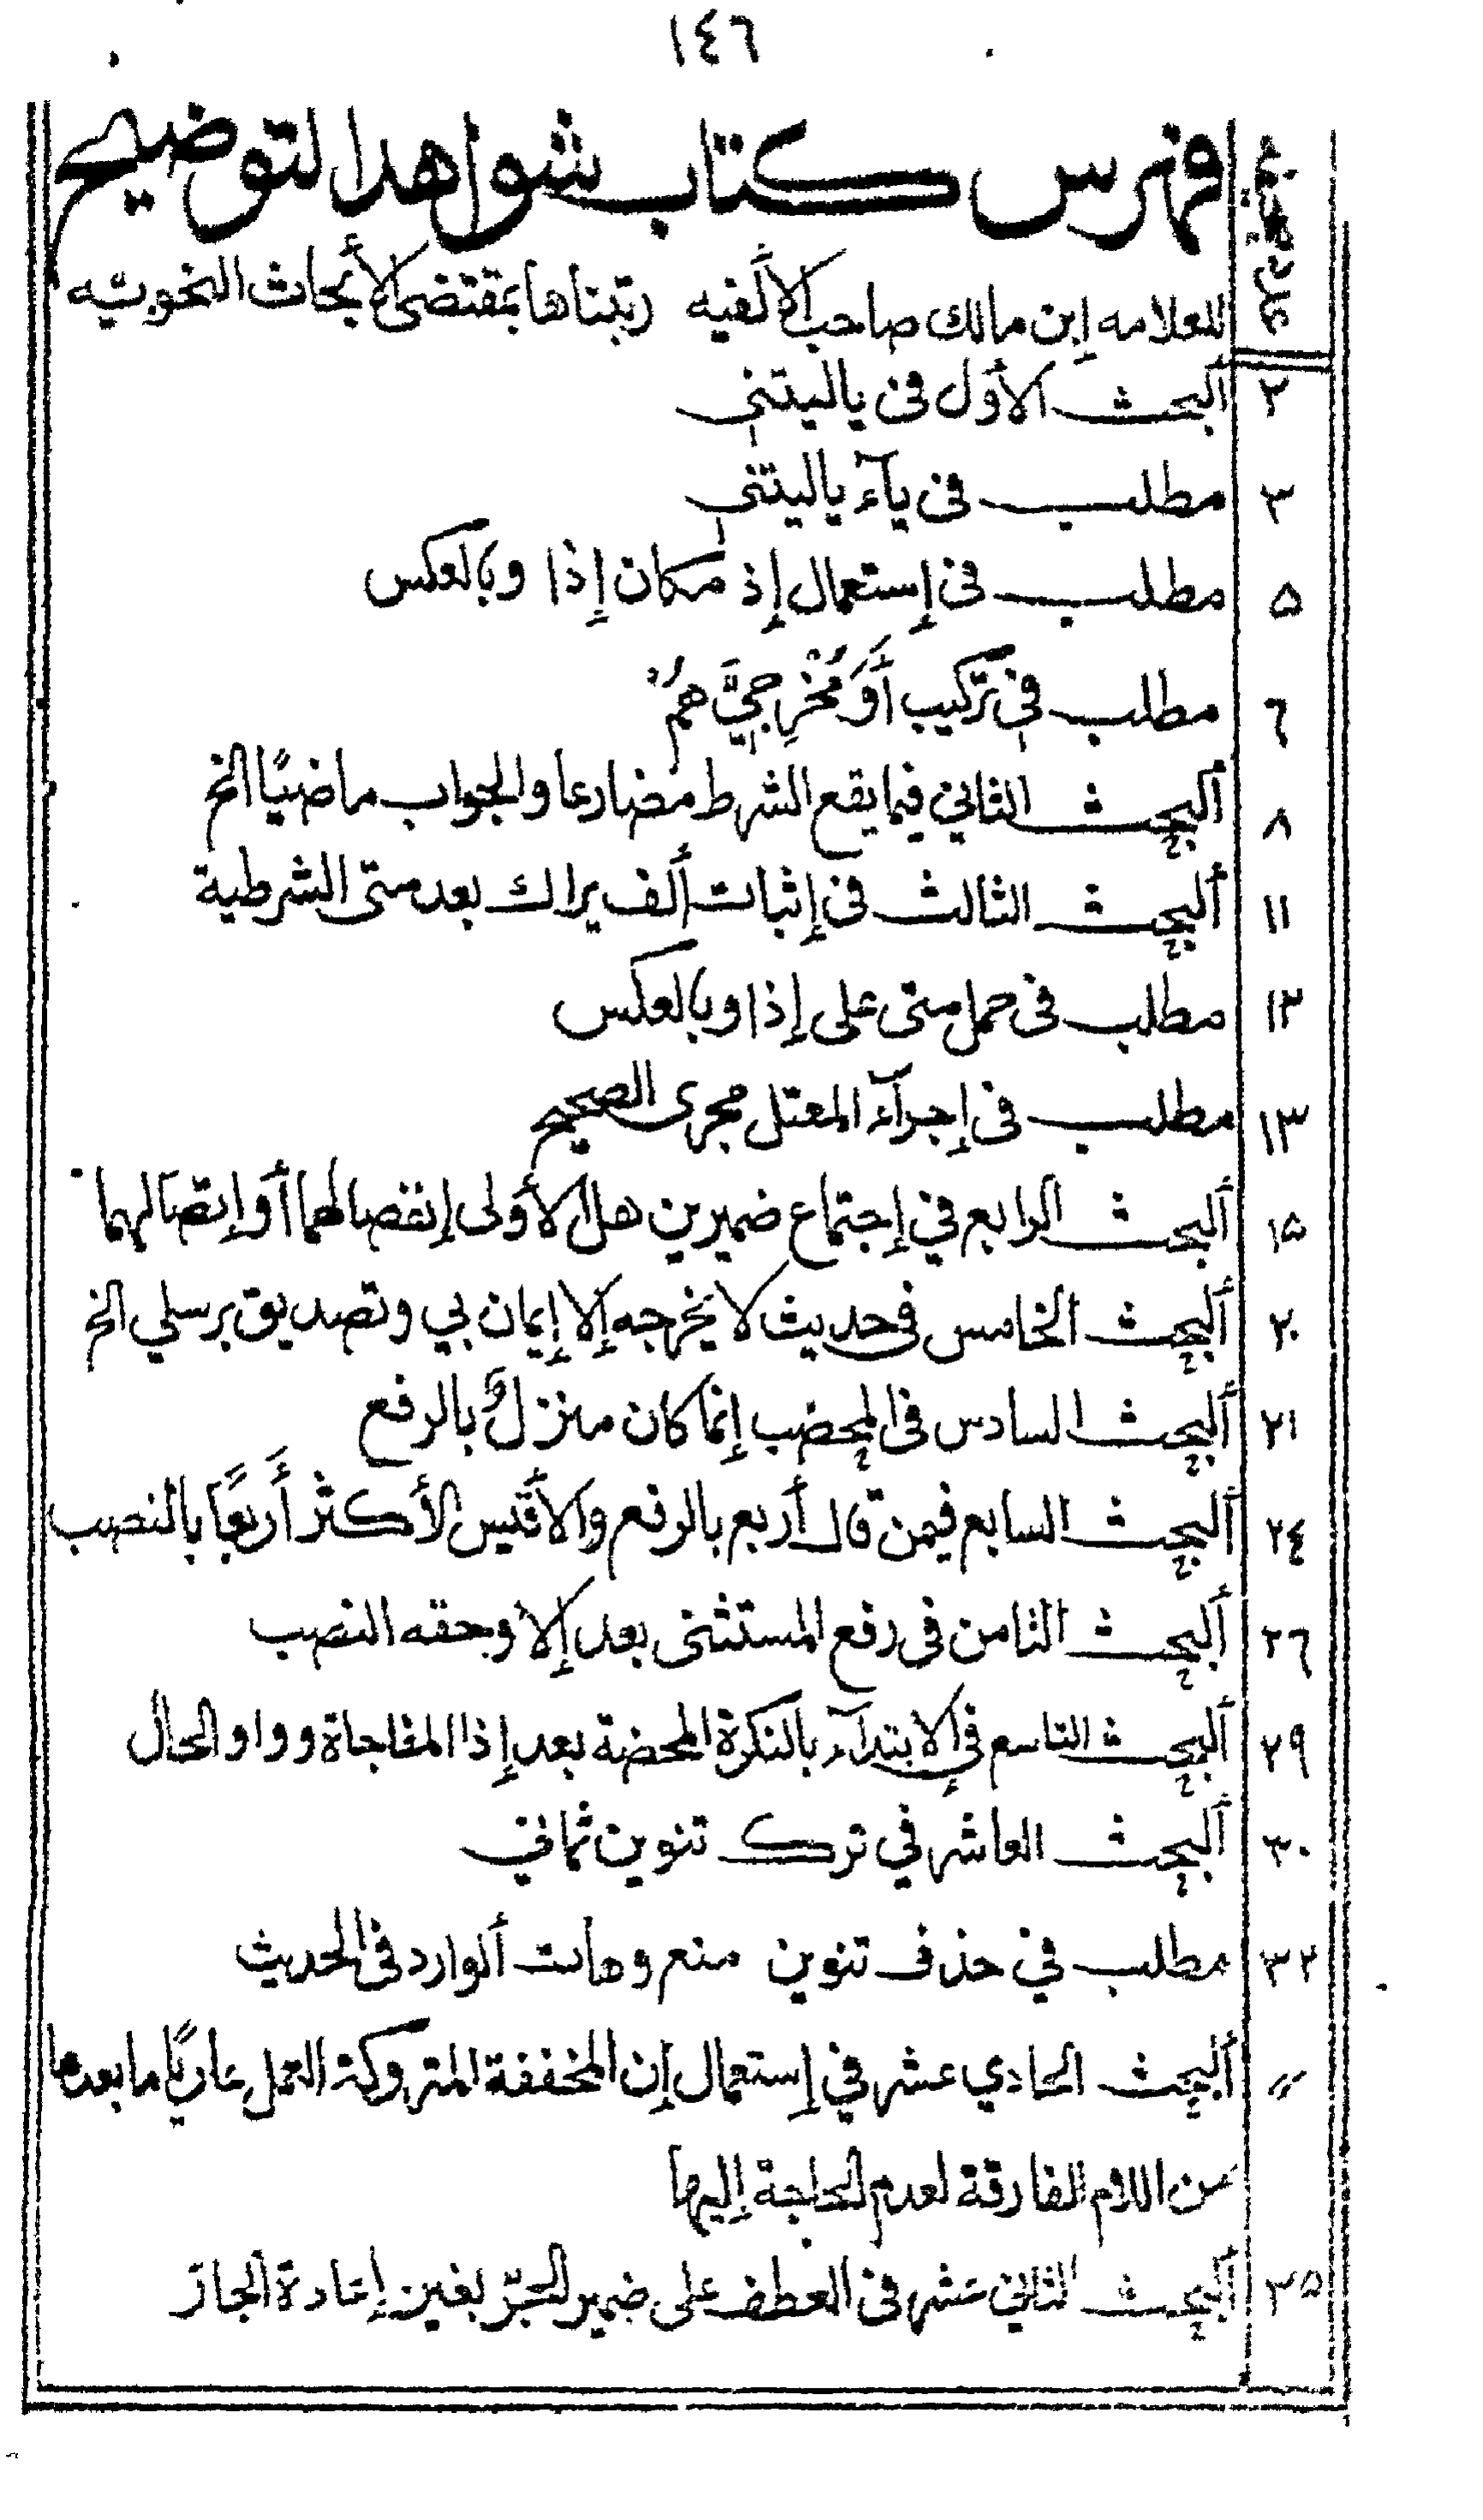 ١٤٦
فهرس كتاب شواهد التوضيح
للعلامه إبن مالك صاحب الألفيه رتبناها بمقتضى الأبحاث النحويّه
٢ ألبحث الأوّل فى ياليتنى
٣ مطلب فى يآء ياليتنى
٥ مطلب فى إستعمال إذ مكان إذا وبالعكس
٦ مطلب فى تركيب أَوَ مُخْرِجِيَّ همُ
٨ ألبحث الثاني فيما يقع الشرط مضارعا والجواب ماضيًا الخ
١١ ألبحث الثالث فى إثبات ألف يراك بعد متى الشرطية
١٢ مطلب فى حمل متى على إذا وبالعكس
١٣ مطلب فى إجرآء المعتل مجرى الصحيح
١٥ ألبحث الرابع في إجتماع ضميرين هل الأولى إنفصالهما أو إتصالهما
٢٠ ألبحث الخامس فى حديث لا يخرجه إلا إيمان بي وتصديق برسلي الخ
٢١ ألبحث السادس فى المحضب إنما كان منزلٌ بالرفع
٢٤ ألبحث السابع فيمن قال أربع بالرفع والأقيس الأكثر أَربعًا بالنصب
٢٦ ألبحث الثامن فى رفع المستثنى بعد إلا وحقه النصب
٢٩ ألبحث التاسع في الإبتدآء بالنكرة المحضة بعد إذا المفاجاة وواو الحال
٣٠ ألبحث العاشر في ترك تنوين ثماني
٣٢ مطلب في حذف تنوين منع وهات ألوارد فى الحديث
〃 ألبحث الحادي عشر في إستعمال إن المخففة المتروكة العمل عاريًا ما بعدها
من اللام الفارقة لعدم الحاجة إليها
٣٥ ألبحث الثاني عشر فى العطف على ضمير الجرّ بغير إعادة الجار